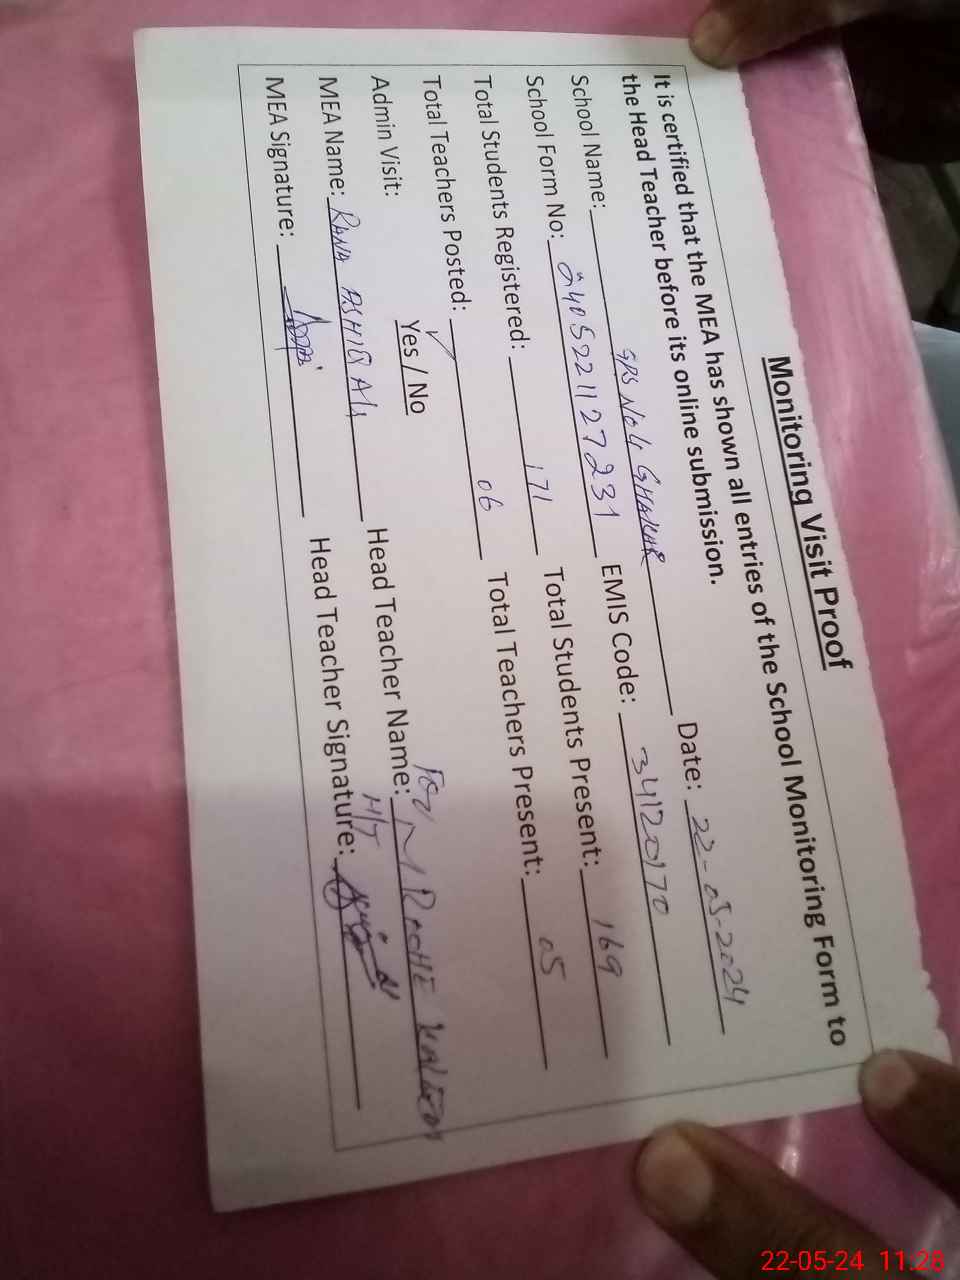 Monitoring Visit Proof
It is certified that the MEA has shown all entries of the School Monitoring Form to
the Head Teacher before its online submission.
Date: 22-05-2024
School Name: GPS No4 GHAKHR
School Form No: 2405221127231 EMIS Code: 34120170
Total Students Registered: 171 Total Students Present: 169
Total Teachers Posted: 06 Total Teachers Present: 05
Admin Visit: Yes / No
MEA Name: RANA ASHIQ Ali Head Teacher Name: For M
H/T
MEA Signature: Head Teacher Signature:
22-05-24 11:28